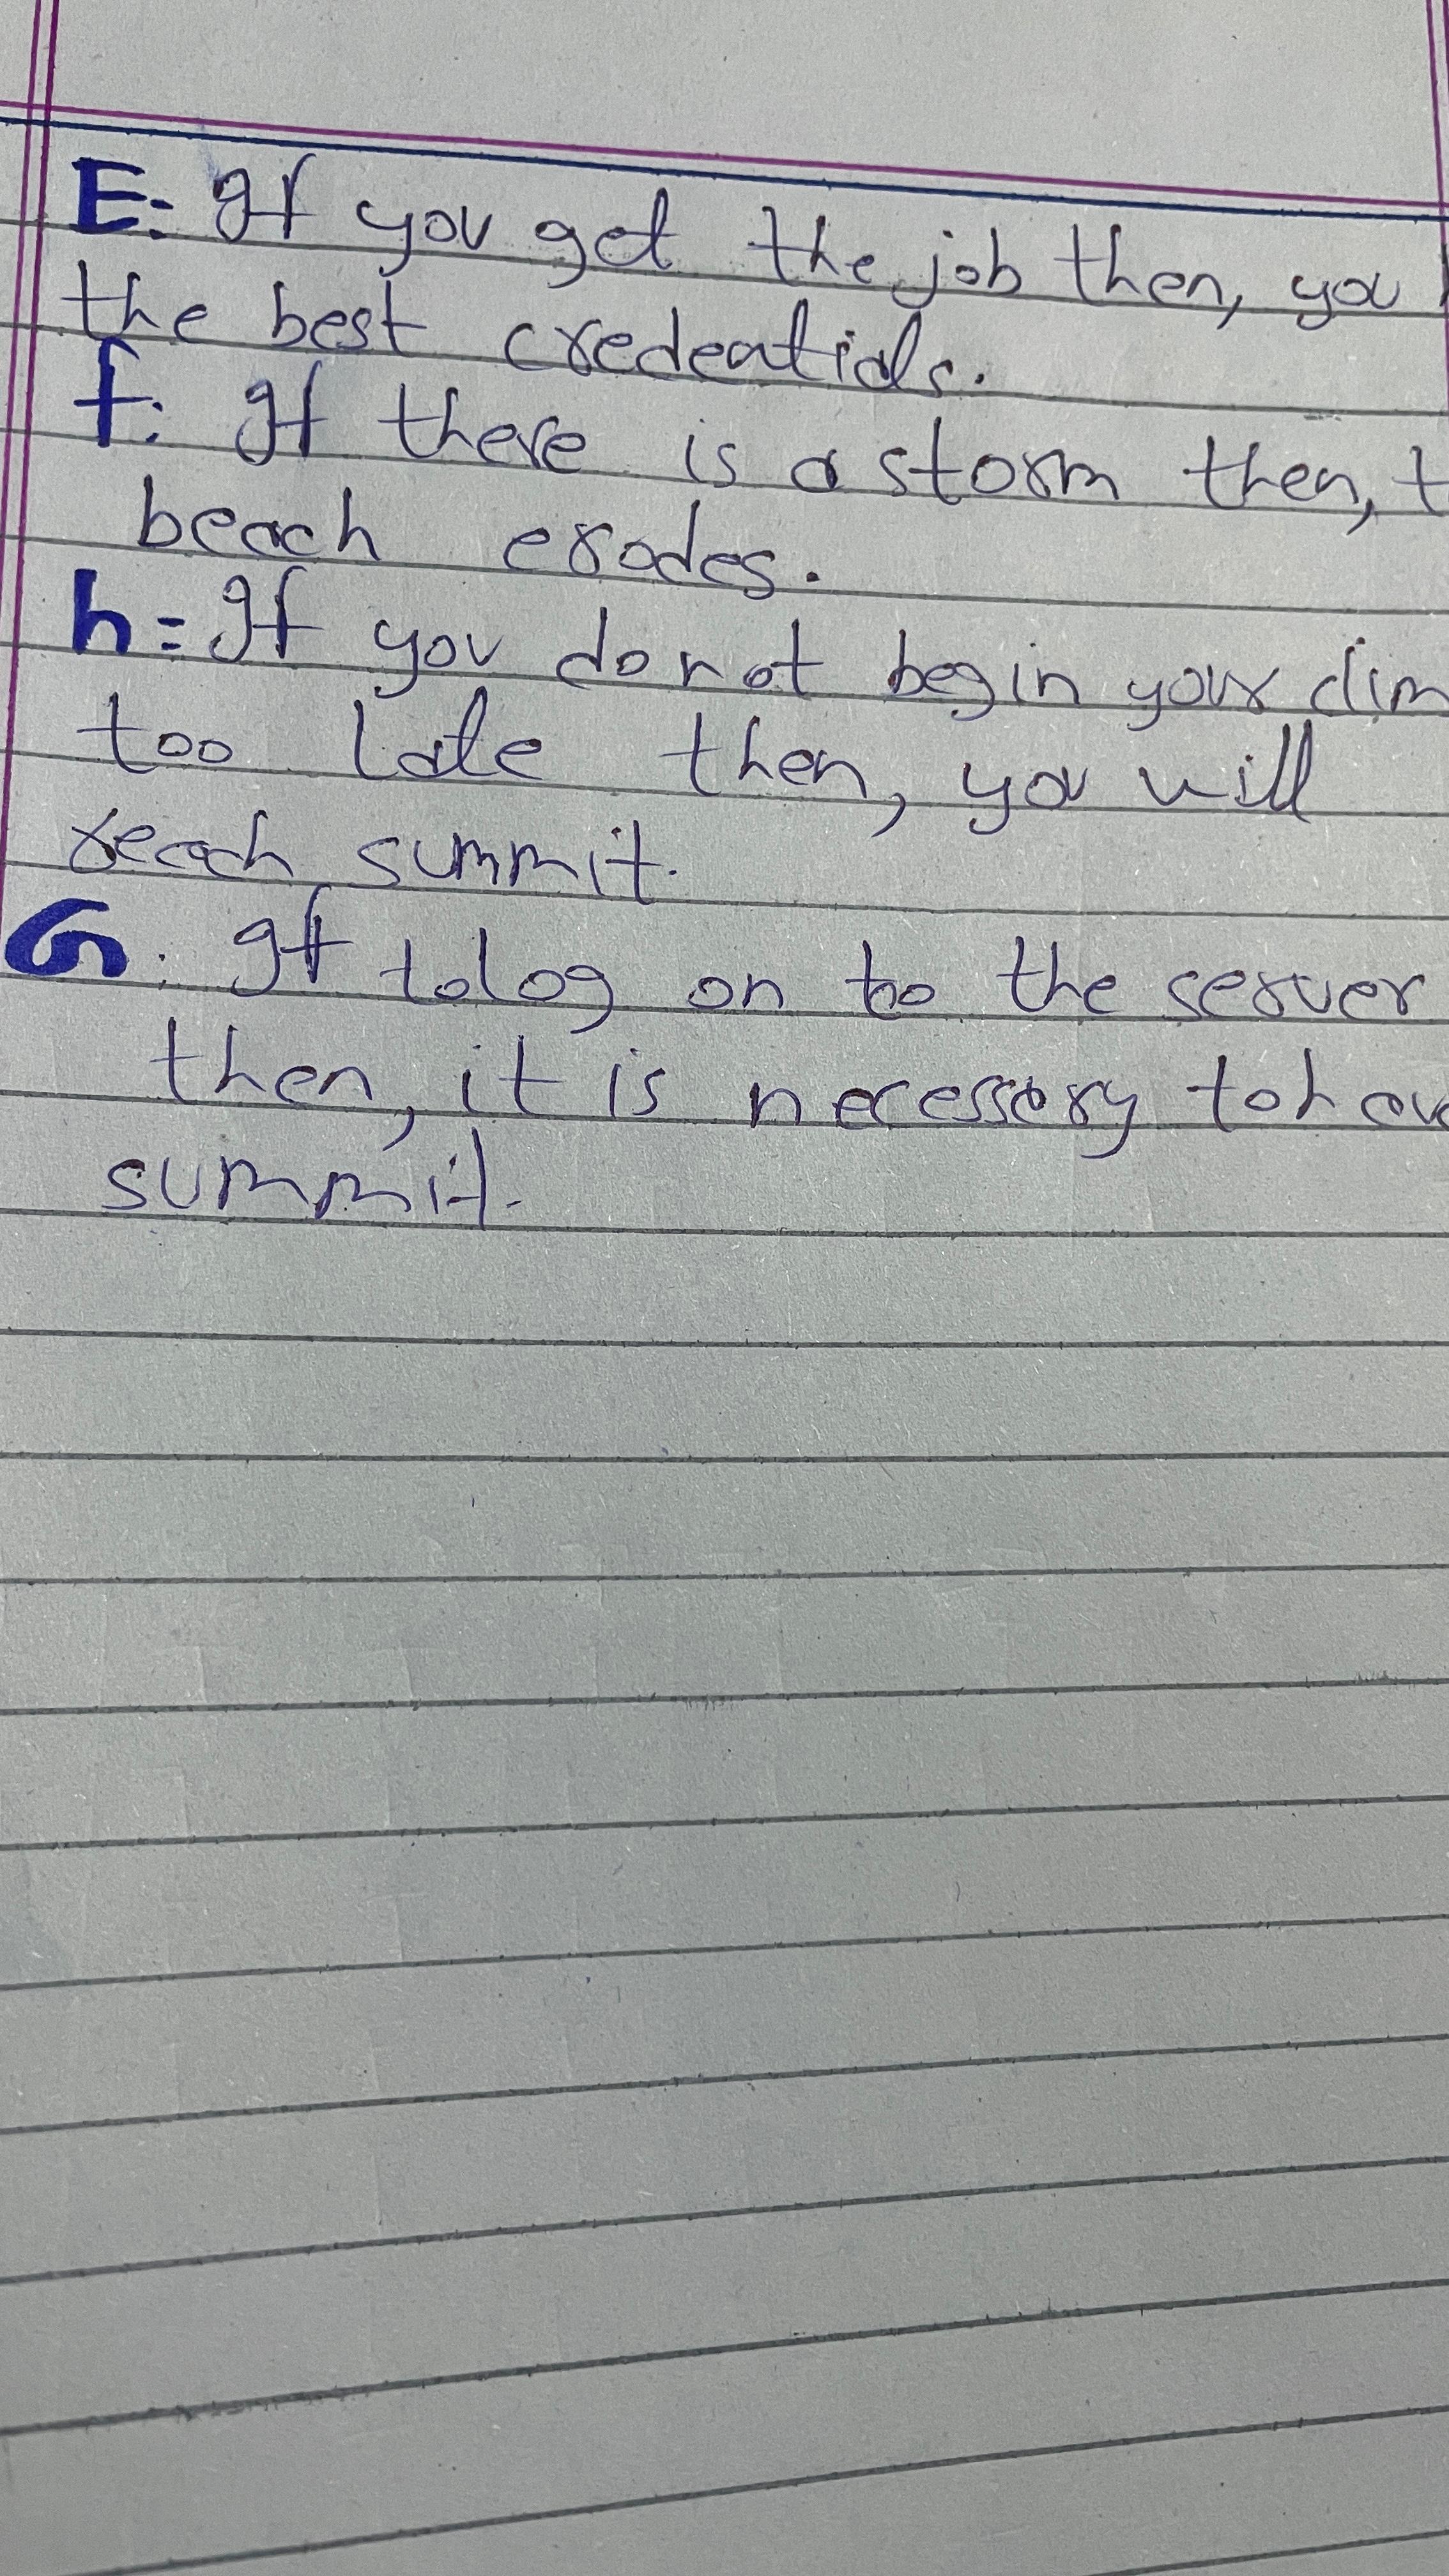 E: If you get the job then, you
the best credentials.
f: If there is a storm then, t
beach erodes.
h = If you do not begin your clim
too late then, you will
reach summit.
G. If to log on to the server
then, it is necessary to hav
summit.